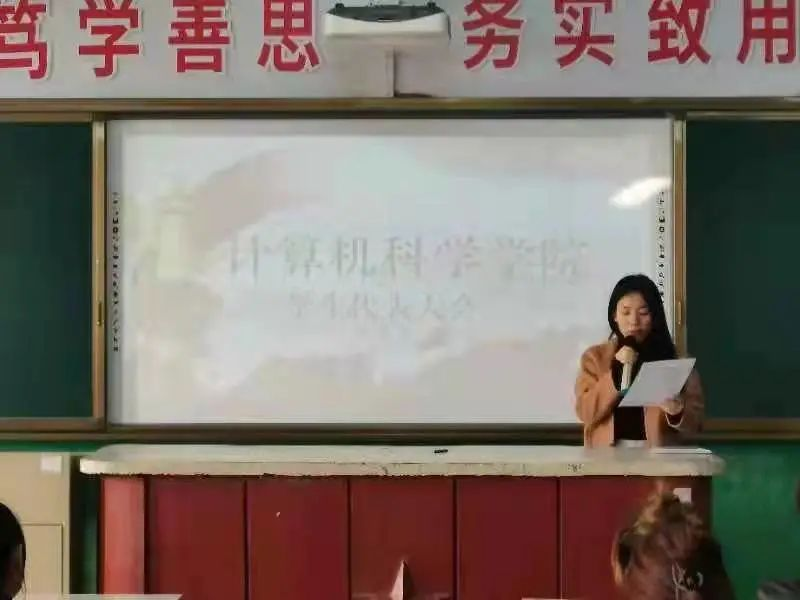 笃学善思 务实致用
计算机科学学院
学生代表大会